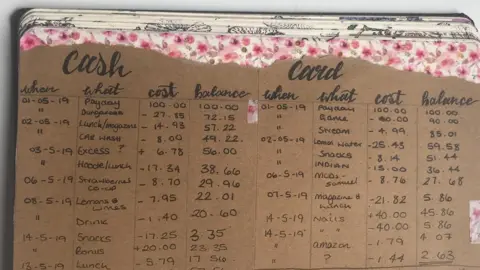 Cash
when what cost balance
01-05-19 Payday 100.00 100.00
" Sungarden - 27.85 72.15
02-05-19 Lunch/magazine - 14.93 57.22
" Car wash - 8.00 49.22
03-5-19 Excess ? + 6.78 56.00
" /Lunch - 17.34 38.66
06-5-19 Strawberries - 8.70 29.96
08-5-19 Lemons & Limes - 7.95 22.01
" Drink - 1.40 20.60
14-5-19 Snacks - 17.25 3.35
" Bonus +20.00 23.35
13-5-19 Lunch - 5.79 17.56
Card
when what cost balance
01-05-19 Payday 100.00 100.00
" Game 90.00
" Steam - 4.99 85.01
02-05-19 Water - 25.43 59.58
" Snacks - 8.14 51.44
" Indian - 15.00 36.44
06-5-19 - 8.76 27.68
07-5-19 magazine & Lunch - 21.82 5.86
14-5-19 nails +40.00 45.86
14-5-19 " - 40.00 5.86
" amazon - 1.79 4.07
" ? - 1.44 2.63